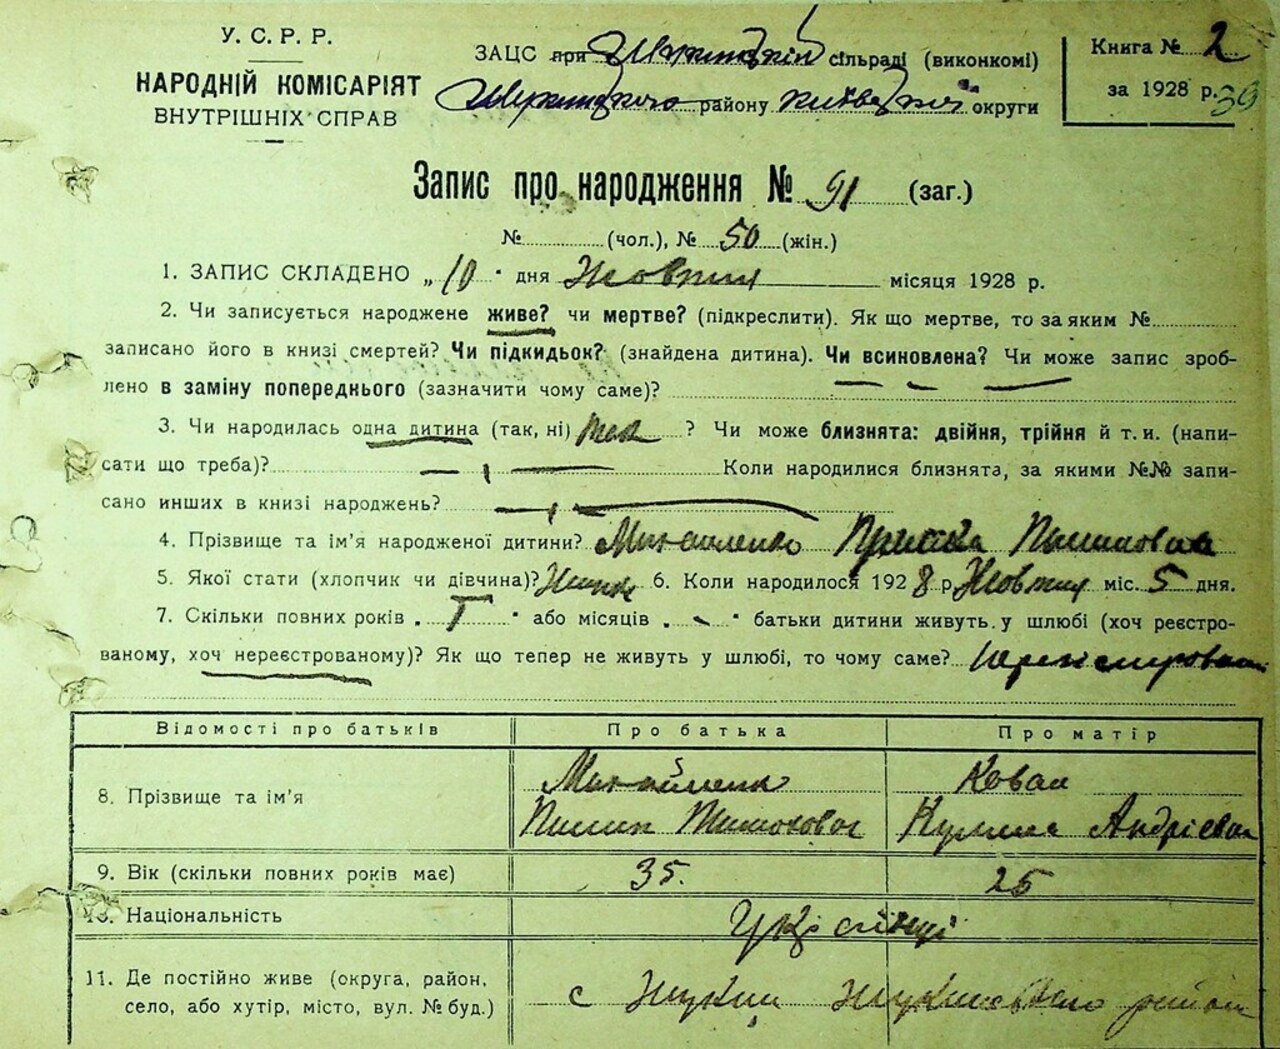 У. С. Р. Р.
НАРОДНІЙ КОМІСАРІЯТ
ВНУТРІШНІХ СПРАВ
ЗАЦС при сільраді (виконкомі)
району округи
Книга № 2
за 1928 р. 39
Запис про народження № 91 (заг.)
№ (чол.), № 50 (жін.)
1. ЗАПИС СКЛАДЕНО „ 10 " дня Жовтня місяця 1928 р.
2. Чи записується народжене живе? чи мертве? (підкреслити). Як що мертве, то за яким №
записано його в книзі смертей? Чи підкидьок? (знайдена дитина). Чи всиновлена? Чи може запис зроб-
лено в заміну попереднього (зазначити чому саме)?
3. Чи народилась одна дитина (так, ні) так ? Чи може близнята: двійня, трійня й т. и. (напи-
сати що треба)? — , — Коли народилися близнята, за якими №№ запи-
сано инших в книзі народжень? — , —
4. Прізвище та ім'я народженої дитини? Михайленко Пилиповна
5. Якої стати (хлопчик чи дівчина)? 6. Коли народилося 1928 р. Жовтня міс. 5 дня.
7. Скільки повних років „ 1 " або місяців „ - " батьки дитини живуть у шлюбі (хоч реєстро-
ваному, хоч нереєстрованому)? Як що тепер не живуть у шлюбі, то чому саме?
Відомості про батьків Про батька Про матір
8. Прізвище та ім'я Михайленко Коваль
Пилип Тимохович Андрієвна
9. Вік (скільки повних років має) 35. 25
10. Національність Українці
11. Де постійно живе (округа, район,
село, або хутір, місто, вул. № буд.) с Жукин Жукинського району